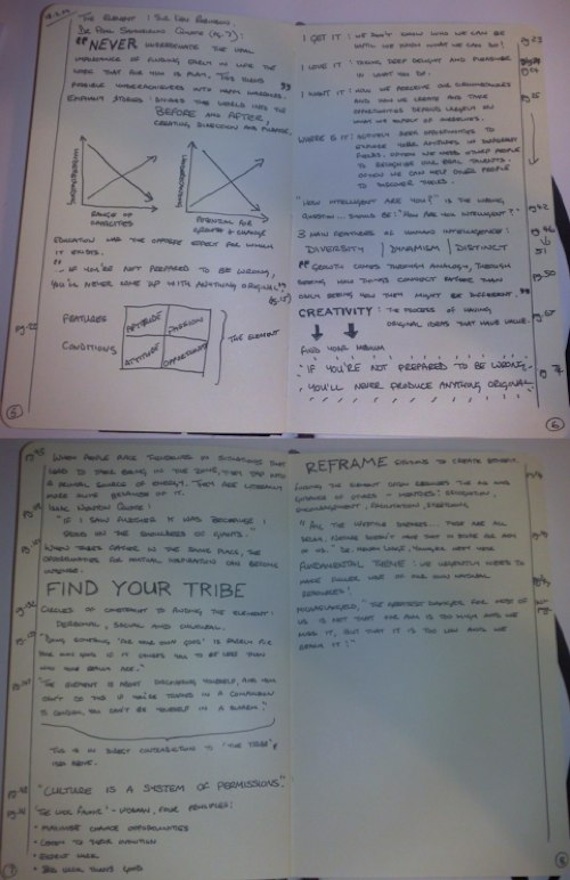 THE ELEMENT | SIR KEN ROBINSON.
QUOTE (pg.7):
"NEVER UNDERESTIMATE THE VITAL
IMPORTANCE OF FINDING EARLY IN LIFE THE
WORK THAT FOR YOU IS PLAY. THIS TURNS
POSSIBLE UNDERACHIEVERS INTO HAPPY WARRIORS."
STORIES: DIVIDES THE WORLD INTO THE
BEFORE AND AFTER,
CREATING DIRECTION AND PURPOSE.
RANGE OF
CAPACITIES
POTENTIAL FOR
GROWTH & CHANGE
EDUCATION HAS THE OPPOSITE EFFECT FOR WHOM
IT EXISTS.
"IF YOU'RE NOT PREPARED TO BE WRONG,
YOU'LL NEVER COME UP WITH ANYTHING ORIGINAL"
(pg.15)
FEATURES
APTITUDE
PASSION
CONDITIONS
ATTITUDE
OPPORTUNITY
THE ELEMENT
5
I GET IT: WE DON'T KNOW WHO WE CAN BE
UNTIL WE KNOW WHAT WE CAN DO!
I LOVE IT: TAKING DEEP DELIGHT AND PLEASURE
IN WHAT YOU DO.
I WANT IT: HOW WE PERCEIVE OUR CIRCUMSTANCES
AND HOW WE CREATE AND TAKE
OPPORTUNITIES DEPENDS LARGELY ON
WHAT WE EXPECT OF OURSELVES.
WHERE IS IT: ACTIVELY SEEK OPPORTUNITIES TO
EXPLORE YOUR APTITUDES IN DIFFERENT
FIELDS. OFTEN WE NEED OTHER PEOPLE
TO RECOGNISE OUR REAL TALENTS.
OFTEN WE CAN HELP OTHER PEOPLE
TO DISCOVER THEIRS.
"HOW INTELLIGENT ARE YOU?" IS THE WRONG
QUESTION... SHOULD BE: "HOW ARE YOU INTELLIGENT?"
3 MAIN FEATURES OF HUMAN INTELLIGENCE:
DIVERSITY | DYNAMISM | DISTINCT
"GROWTH COMES THROUGH ANALOGY, THROUGH
SEEING HOW THINGS CONNECT RATHER THAN
ONLY SEEING HOW THEY MIGHT BE DIFFERENT."
pg.50
CREATIVITY: THE PROCESS OF HAVING
ORIGINAL IDEAS THAT HAVE VALUE.
FIND YOUR MEDIUM
"IF YOU'RE NOT PREPARED TO BE WRONG
YOU'LL NEVER PRODUCE ANYTHING ORIGINAL
6
WHEN PEOPLE PLACE THEMSELVES IN SITUATIONS THAT
LEAD TO THEIR BEING IN THE ZONE, THEY TAP INTO
A PRIMAL SOURCE OF ENERGY. THEY ARE LITERALLY
MORE ALIVE BECAUSE OF IT.
ISAAC NEWTON QUOTE:
"IF I SAW FURTHER IT WAS BECAUSE I
STOOD ON THE SHOULDERS OF GIANTS."
WHEN TRIBES GATHER IN THE SAME PLACE, THE
OPPORTUNITIES FOR MUTUAL INSPIRATION CAN BECOME
INTENSE.
FIND YOUR TRIBE
CIRCLES OF CONSTRAINT TO FINDING THE ELEMENT:
PERSONAL, SOCIAL AND CULTURAL.
"DOING SOMETHING 'FOR YOUR OWN GOOD' IS RARELY FOR
YOUR OWN GOOD IF IT CAUSES YOU TO BE LESS THAN
WHO YOUR REALLY ARE."
"THE ELEMENT IS ABOUT DISCOVERING YOURSELF, AND YOU
CAN'T DO THIS IF YOU'RE TRAPPED IN A COMPULSION
TO CONFORM. YOU CAN'T BE YOURSELF IN A SWARM."
THIS IS IN DIRECT CONTRADICTION TO "THE TRIBE"
IDEA ABOVE.
"CULTURE IS A SYSTEM OF PERMISSIONS."
'THE LUCK FACTOR' - WISEMAN, FOUR PRINCIPLES:
• MAXIMISE CHANCE OPPORTUNITIES
• LISTEN TO THEIR INTUITION
• EXPECT LUCK
• BAD LUCK TURNS GOOD
7
REFRAME SITUATIONS TO CREATE BENEFIT.
FINDING THE ELEMENT OFTEN REQUIRES THE AID AND
GUIDANCE OF OTHERS - MENTORS: RECOGNITION,
ENCOURAGEMENT, FACILITATION, STRETCHING.
FUNDAMENTAL THEME: WE URGENTLY NEED TO
MAKE FULLER USE OF OUR OWN NATURAL
RESOURCES!
MICHAELANGELO, "THE GREATEST DANGER FOR MOST OF
US IS NOT THAT OUR AIM IS TOO HIGH AND WE
MISS IT, BUT THAT IT IS TOO LOW AND WE
REACH IT!"
8